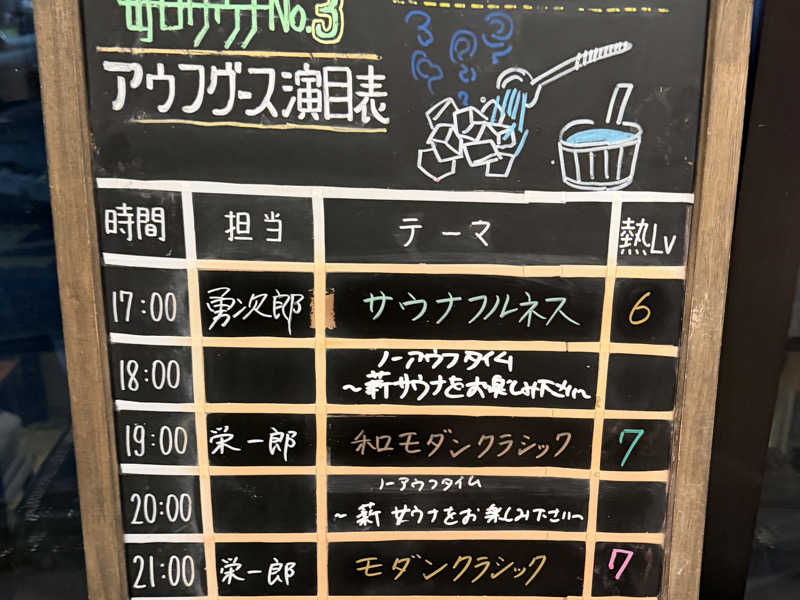 サウナNo.3
アウフグース演目表
時間 担当 テーマ 熱Lv
17:00 勇次郎 サウナフルネス 6
18:00 ノーアウフタイム
～薪サウナをお楽しみ下さい～
19:00 栄一郎 和モダンクラシック 7
20:00 ノーアウフタイム
～薪サウナをお楽しみ下さい～
21:00 栄一郎 モダンクラシック 7